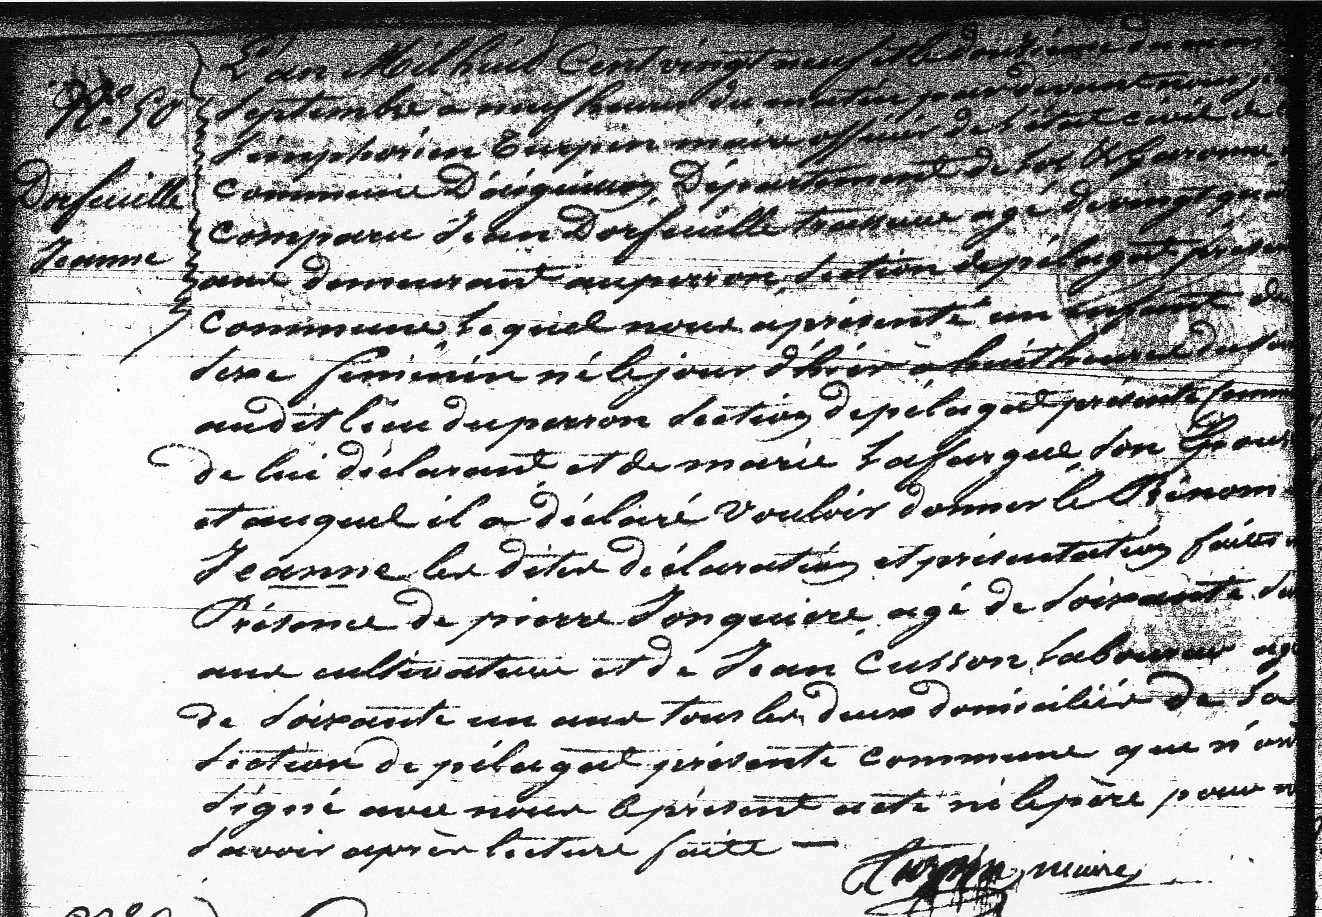 L'an Mil huit Cent vingt neuf et le douzième du mois
N.° 50
Septembre à neuf heures du matin par devant nous
Simphorien Turpin maire officier de l'état civil de
Dorfeuille
commune D'aiguillon, Département de Lot & Garonne,
comparu Jean Dorfeuille agé de vingt
Jeanne
ans demeurant auperron, Section de pélagat présen
Commune lequel nous a présenté un enfant du
Sexe féminin né le jour d'hier à huit heures du
audit lieu duperron Section de pélagat présente Comm
de lui déclarant et de marie Lafargue Son Epous
et auquel il a déclaré vouloir donner le Prénom
Jeanne les dites déclaration et présentation faites
Présence de pierre Jonquiere, agé de Soixante
ans cultivateur et de Jean Cusson, Laboureur agé
de Soixante un ans tous les deux domiciliés De La
Section de pélagat présente commune que n'ont
Signé avec nous le présent acte ni le père pour n
Savoir après lecture faite —
Turpin maire